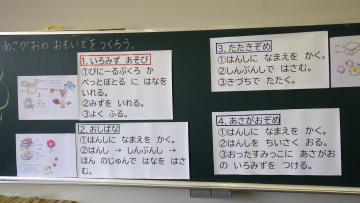 あさがおの おもいでをつくろう。
1.いろみず あそび
①びにーるぶくろ か
ぺっとぼとる に はなを
いれる。
②みずを いれる。
③よく ふる。
2.おしばな
①はんしに なまえを かく。
②はんし → しんぶんし →
ほん のじゅんで はなを はさ
む。
3.たたきぞめ
①はんしに なまえを かく。
②しんぶんしで はさむ。
③きづちで たたく。
4.あさがおぞめ
①はんしに なまえを かく。
②はんしを ちいさく おる。
③おったすみっこに あさがお
の いろみずを つける。